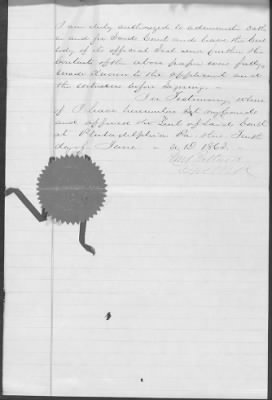 I am duly authorized to administer Oaths
in and for said Court and have the Cus
tody of its official Seal and further the
Contents of the above paper were fully
made known to the applicant and
the witnesses before Signing. —
In Testimony where
of I have hereunto Set my hand
and affixed the Seal of said Court
at Philadelphia Pa this Tenth
day of June — A.D. 1862.